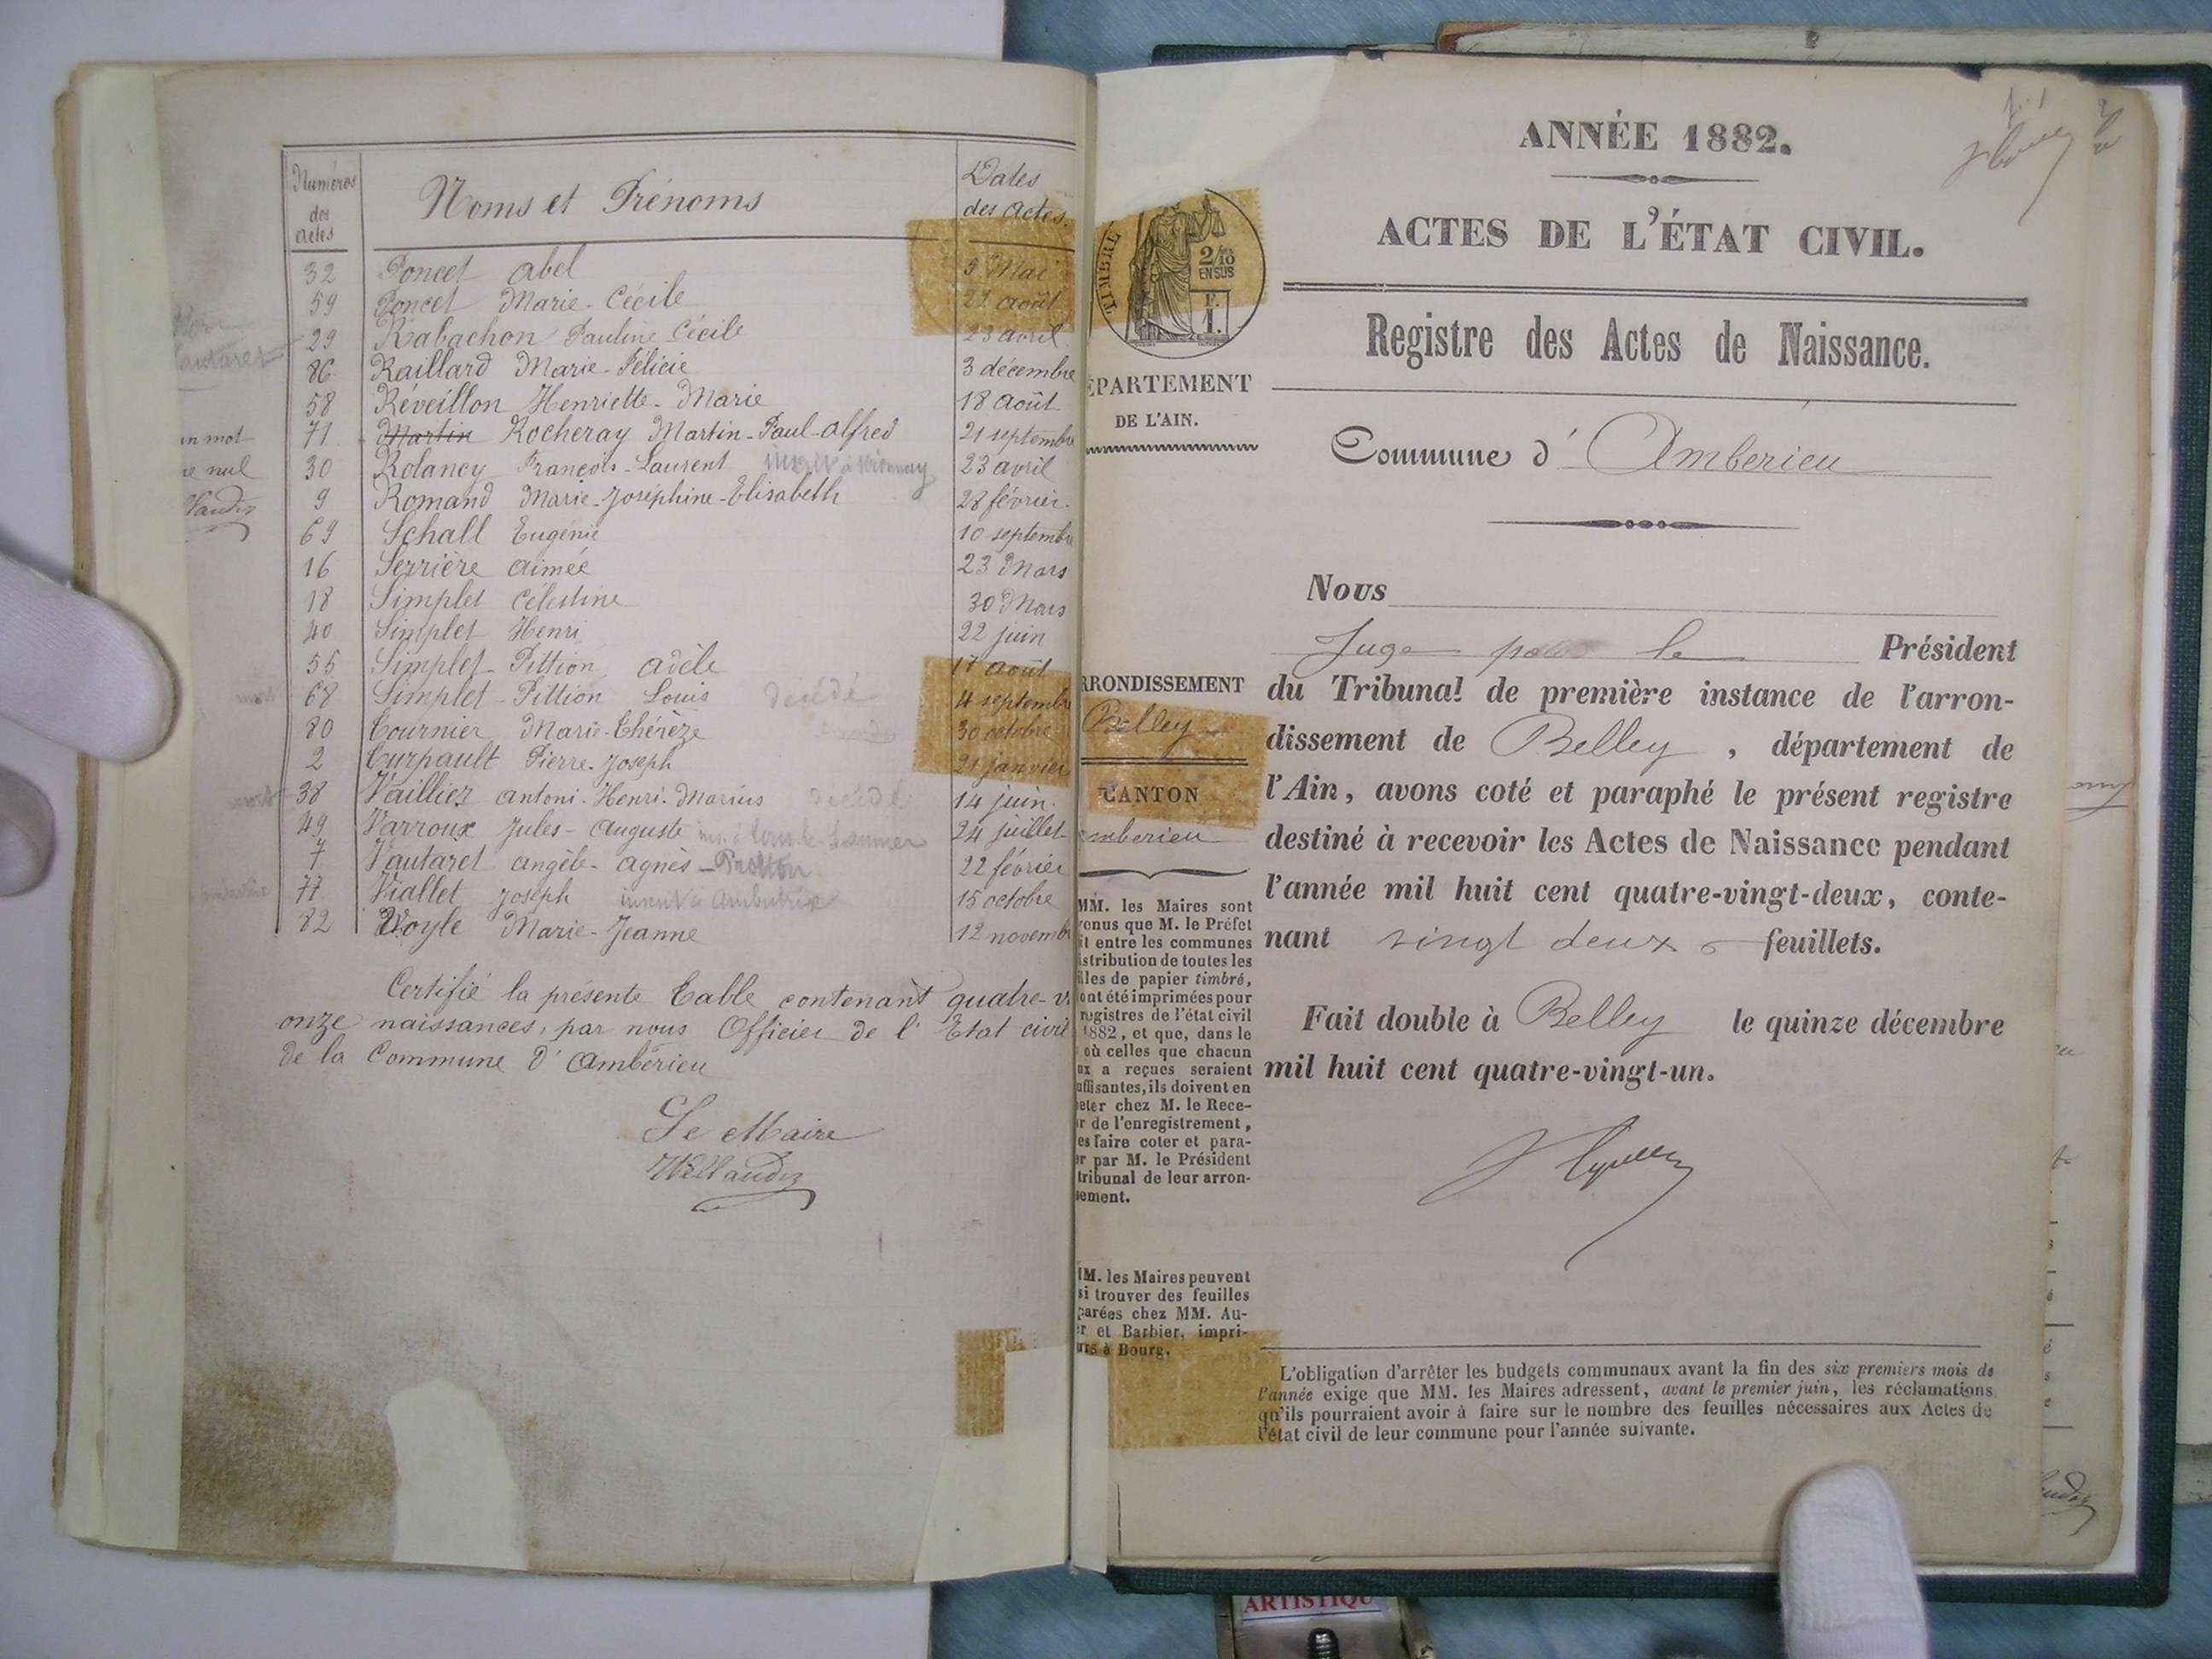 Numéros des actes Noms et Prénoms Dates des Actes.
32 Poncet Abel 5 Mai
59 Poncet Marie-Cécile 22 août
29 Rabachon Pauline Cécile 23 avril
86 Raillard Marie-Félicie 3 décembre
58 Réveillon Henriette-Marie 18 août
71 Martin Rocheray Martin-Paul-Alfred 21 septembre
30 Rolancy François-Laurent 23 avril
9 Romand Marie-Joséphine-Elisabeth 28 février
69 Schall Eugénie 10 septembre
16 Serrière Aimée 23 Mars
18 Simplet Célestine 30 Mars
40 Simplet Henri 22 juin
55 Simplet-Pittion Adèle 17 août
68 Simplet-Pittion Louis décédé 4 septembre
80 Tournier Marie-Thérèze 30 octobre
2 Turpault Pierre-Joseph 21 janvier
38 Vaillier Antoni-Henri-Marius décédé 14 juin
49 Varroux Jules-Auguste 24 juillet
7 Vautaret Angèle-Agnès 22 février
77 Viallet Joseph inscrit à Ambutrix 15 octobre
82 Voyle Marie-Jeanne 12 novemb
un mot
nul
Certifié la présente Table contenant quatre-v
onze naissances, par nous Officier de l'Etat civil
de la Commune d'Ambérieu
Le Maire
ANNÉE 1882.
ACTES DE L'ÉTAT CIVIL.
Registre des Actes de Naissance.
Commune d' Amberieu
TIMBRE
2/10
EN SUS
F.
1.
ÉPARTEMENT
DE L'AIN.
RRONDISSEMENT
Belley
CANTON
mberieu
MM. les Maires sont
venus que M. le Préfet
it entre les communes
istribution de toutes les
illes de papier timbré,
ont été imprimées pour
registres de l'état civil
1882, et que, dans le
où celles que chacun
ux a reçues seraient
uffisantes, ils doivent en
eter chez M. le Rece-
r de l'enregistrement,
es faire coter et para-
er par M. le Président
tribunal de leur arron-
sement.
IM. les Maires peuvent
si trouver des feuilles
parées chez MM. Au-
er et Barbier, impri-
urs à Bourg.
Nous
Juge pour le Président
du Tribunal de première instance de l'arron-
dissement de Belley, département de
l'Ain, avons coté et paraphé le présent registre
destiné à recevoir les Actes de Naissance pendant
l'année mil huit cent quatre-vingt-deux, conte-
nant vingt deux feuillets.
Fait double à Belley le quinze décembre
mil huit cent quatre-vingt-un.
L'obligation d'arrêter les budgets communaux avant la fin des six premiers mois de
l'année exige que MM. les Maires adressent, avant le premier juin, les réclamations
qu'ils pourraient avoir à faire sur le nombre des feuilles nécessaires aux Actes de
l'état civil de leur commune pour l'année suivante.
ARTISTIQU